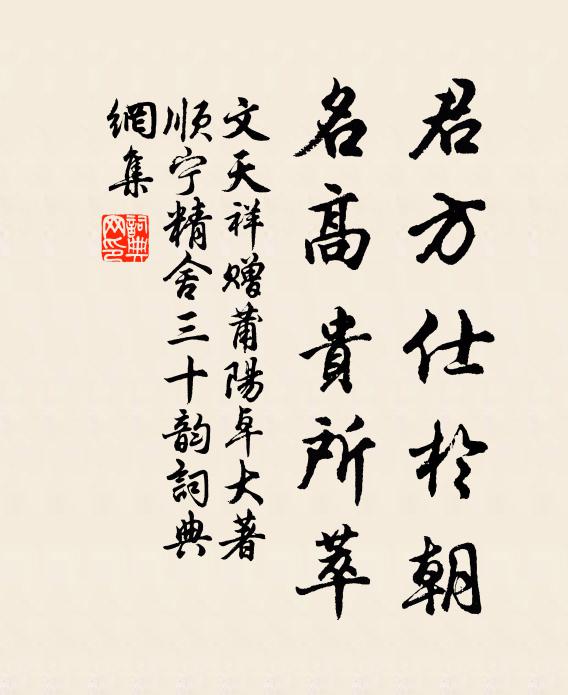 君方仕於朝
名高貴所萃
文天祥贈莆陽卓大著
順宁精舍三十韵詞典
網集
詞典
网印